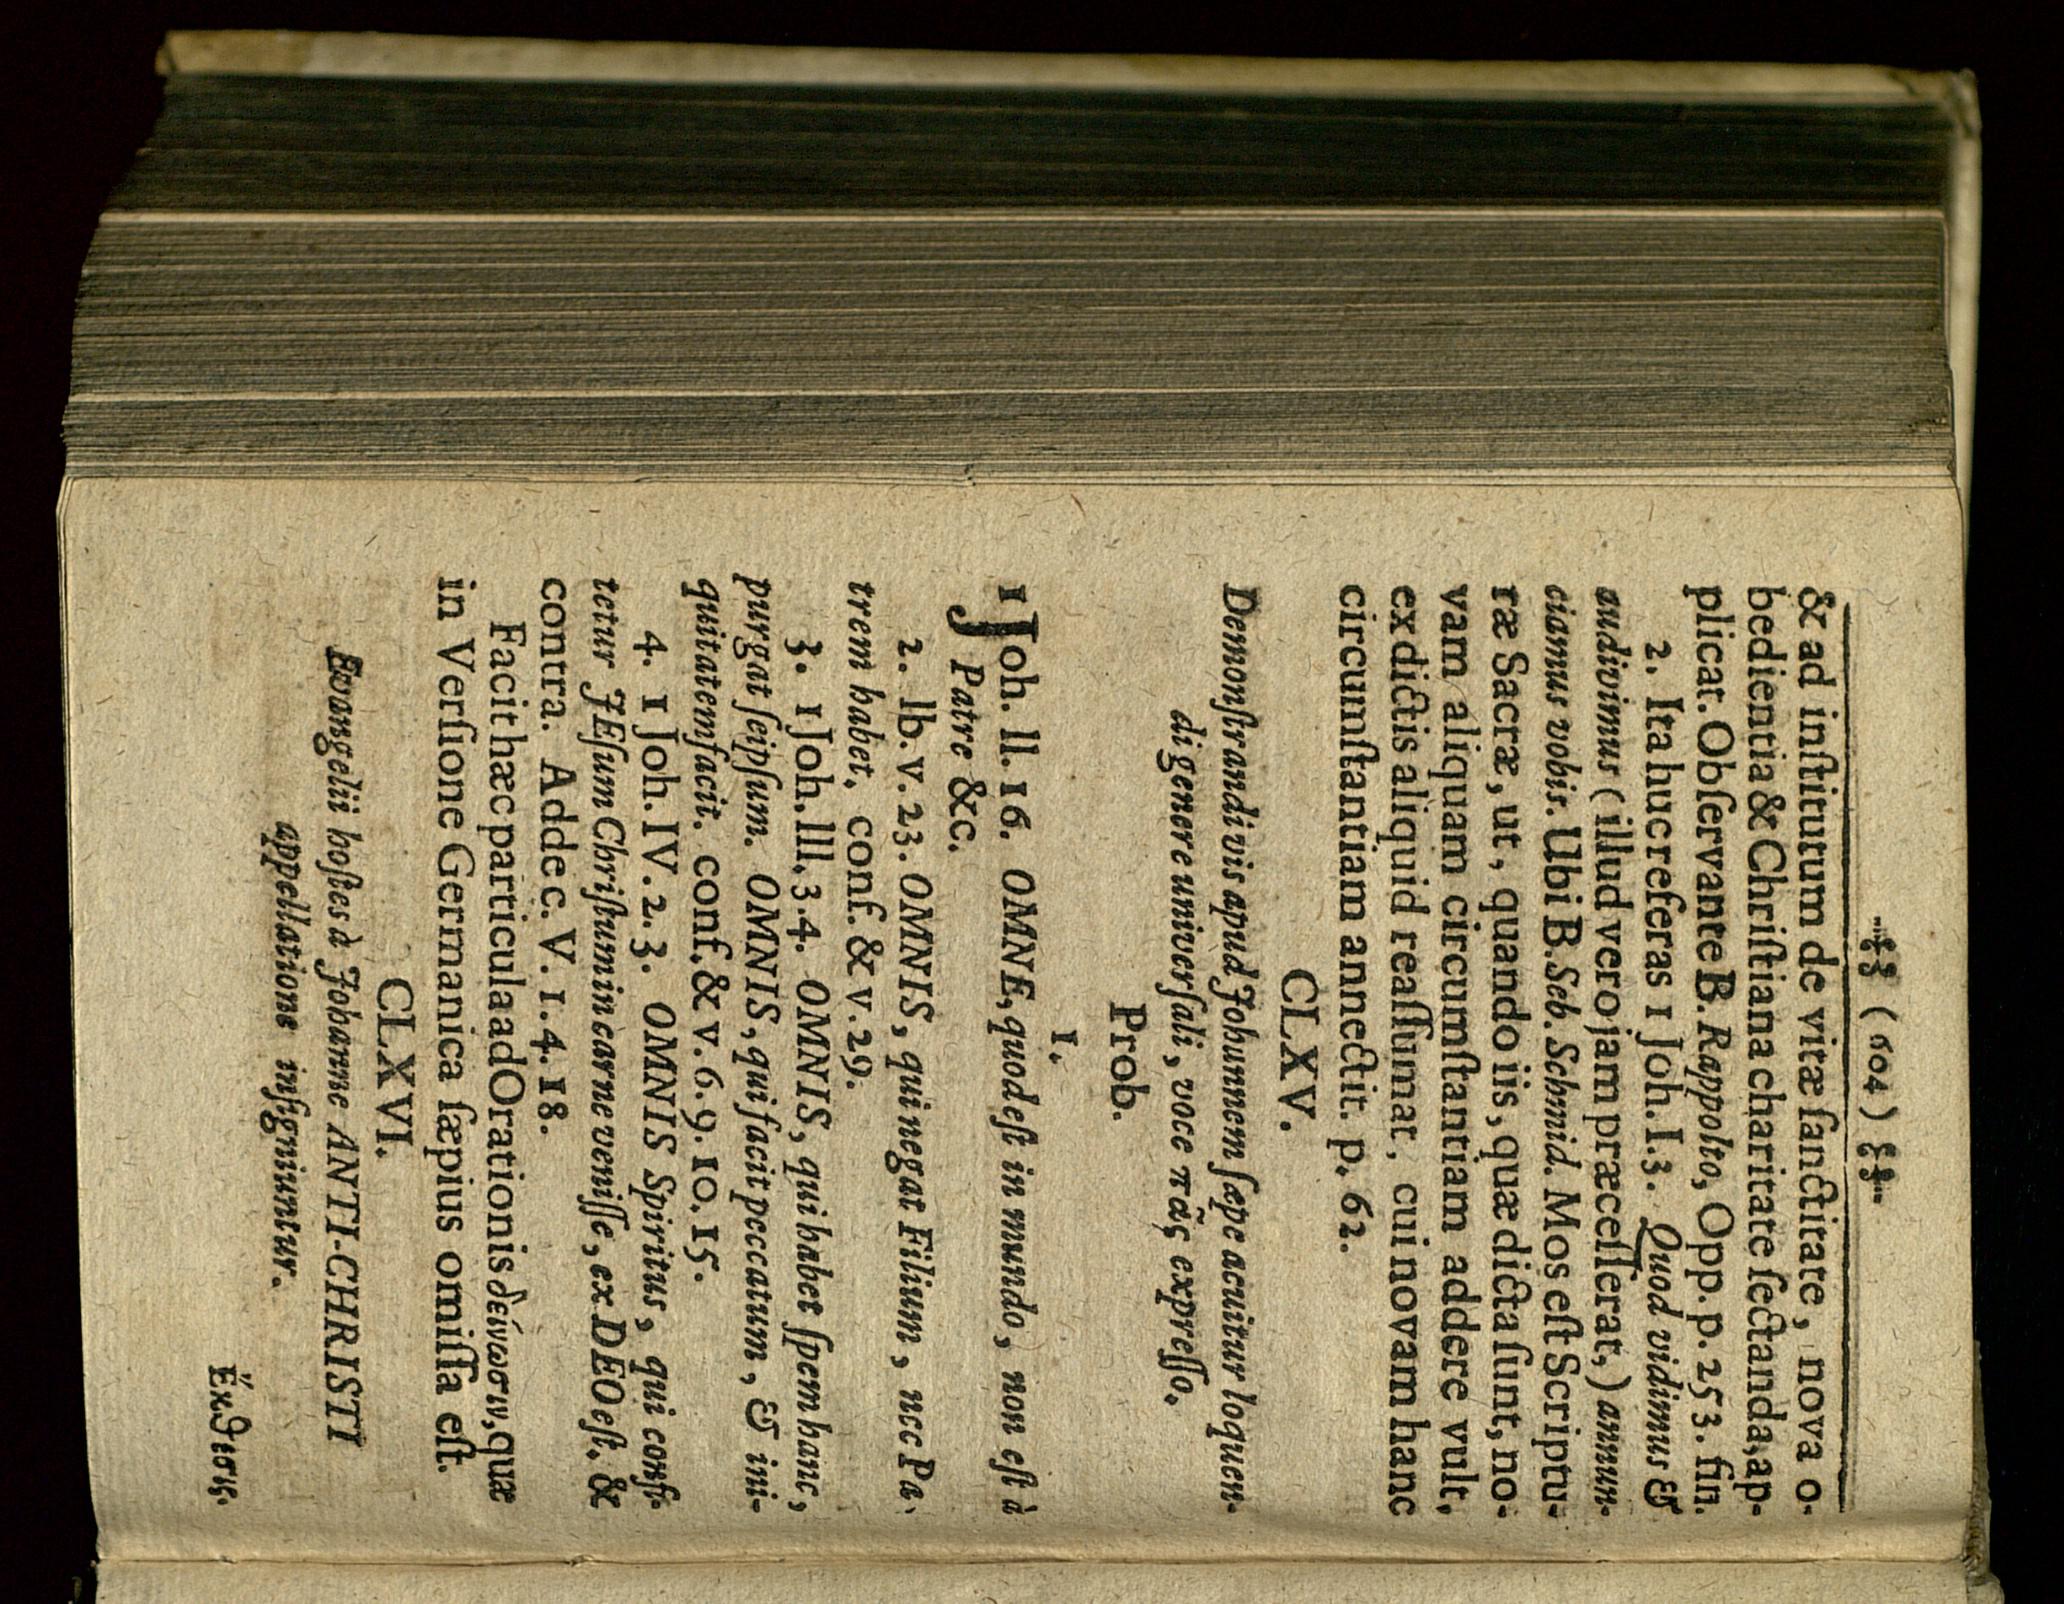 ( 604 )
& ad inſtitutum de vitæ ſanctitate, nova o-
bedientia & Chriſtiana charitate ſectanda, ap-
plicat. Obſervante B. Rappolto, Opp. p. 253. fin.
2. Ita huc referas 1 Joh. I. 3. Quod vidimus &
audivimus (illud vero jam præceſſerat,) annun-
ciamus vobis. Ubi B. Seb. Schmid. Mos eſt Scriptu-
ræ Sacræ, ut, quando iis, quæ dicta ſunt, no-
vam aliquam circumſtantiam addere vult,
ex dictis aliquid reaſſumat, cui novam hanc
circumſtantiam annectit. p. 62.
CLXV.
Demonſtrandi vis apud Johannem ſæpe acuitur loquen-
di genere univerſali, voce πᾶς expreſſo.
Prob.
1.
1 Joh. II. 16. OMNE, quod eſt in mundo, non eſt à
Patre &c.
2. Ib. v. 23. OMNIS, qui negat Filium, nec Pa-
trem habet, conf. & v. 29.
3. 1 Joh. III. 3. 4. OMNIS, qui habet ſpem hanc,
purgat ſeipſum. OMNIS, qui facit peccatum, & ini-
quitatem facit. conf. & v. 6. 9. 10. 15.
4. 1 Joh. IV. 2. 3. OMNIS Spiritus, qui confi-
tetur JEſum Chriſtum in carne veniſſe, ex DEO eſt. &
contra. Adde c. V. 1. 4. 18.
Facit hæc particula ad Orationis δείνωσιν, quæ
in Verſione Germanica ſæpius omiſſa eſt.
CLXVI.
Evangelii hoſtes à Johanne ANTI-CHRISTI
appellatione inſigniuntur.
Ἔκθεσις.